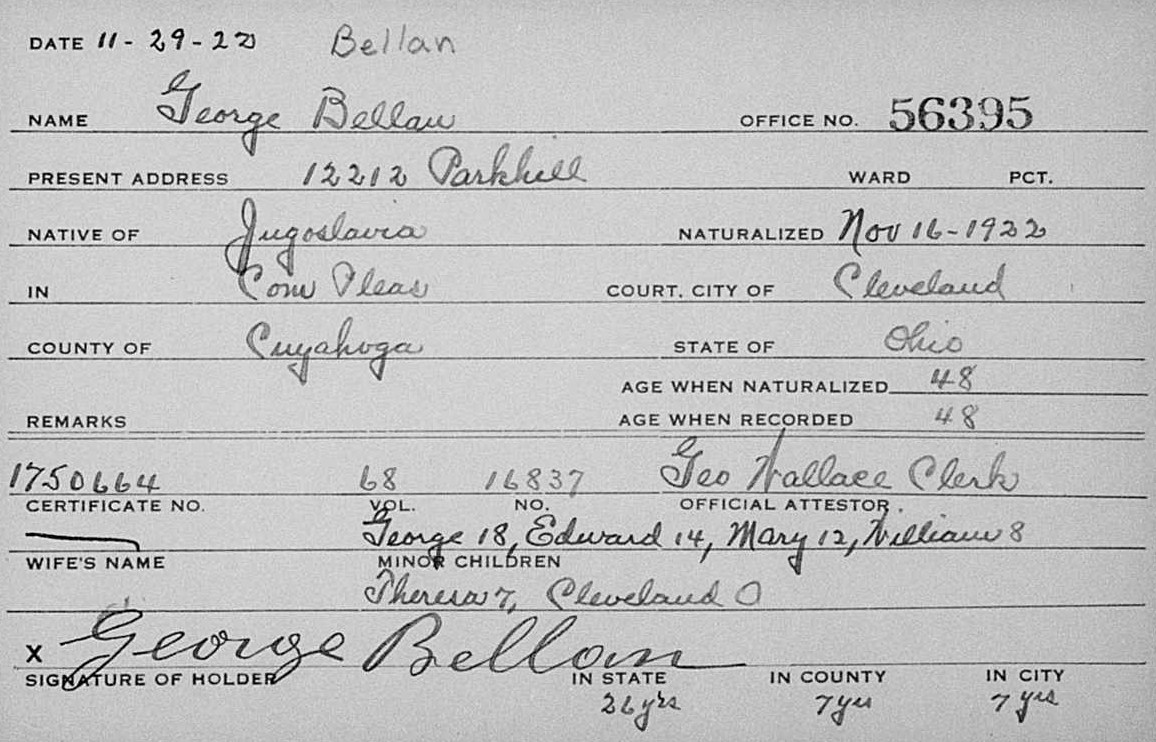 DATE 11-29-22 Bellan
NAME George Bellan OFFICE NO. 56395
PRESENT ADDRESS 12212 Parkhill WARD PCT.
NATIVE OF Jugoslavia NATURALIZED Nov 16-1922
IN Com Pleas COURT. CITY OF Cleveland
COUNTY OF Cuyahoga STATE OF Ohio
AGE WHEN NATURALIZED 48
REMARKS AGE WHEN RECORDED 48
1750664 68 16837 Geo Wallace Clerk
CERTIFICATE NO. VOL. NO. OFFICIAL ATTESTOR.
George 18, Edward 14, Mary 12, William 8
WIFE'S NAME MINOR CHILDREN
Theresa 7, Cleveland O
X George Bellan
SIGNATURE OF HOLDER IN STATE IN COUNTY IN CITY
26 yrs 7 yrs 7 yrs